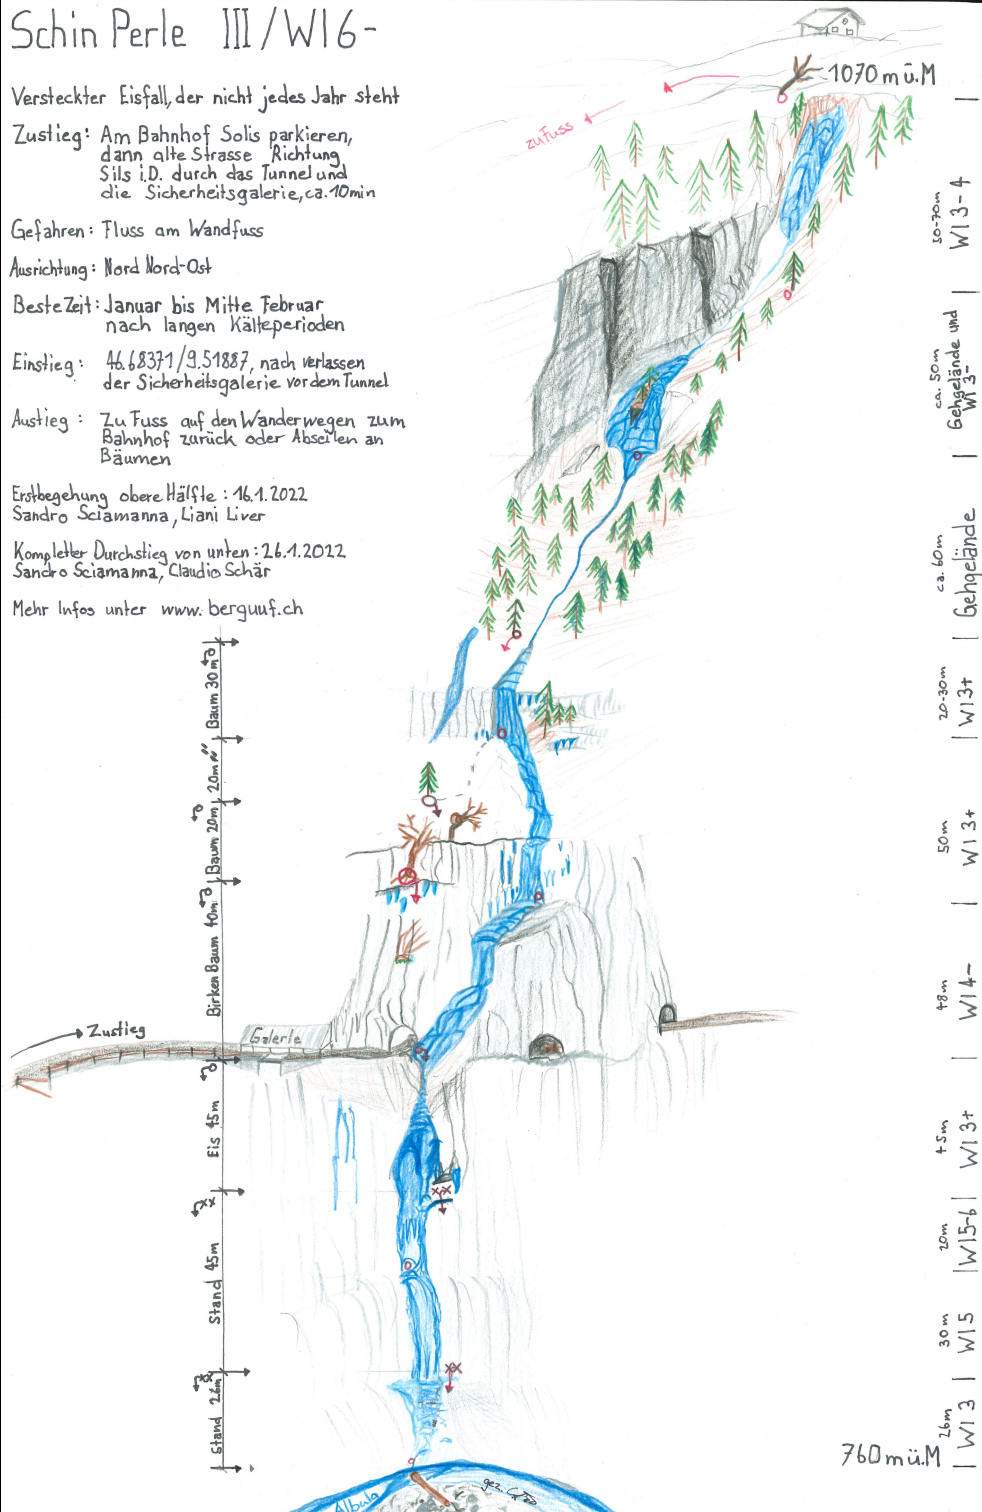 Schin Perle III/WI6-
Versteckter Eisfall, der nicht jedes Jahr steht
Zustieg: Am Bahnhof Solis parkieren,
dann alte Strasse Richtung
Sils i.D. durch das Tunnel und
die Sicherheitsgalerie, ca. 10min
Gefahren: Fluss am Wandfuss
Ausrichtung: Nord Nord-Ost
Beste Zeit: Januar bis Mitte Februar
nach langen Kälteperioden
Einstieg: 46.68371/9.51887, nach verlassen
der Sicherheitsgalerie vor dem Tunnel
Austieg: Zu Fuss auf den Wanderwegen zum
Bahnhof zurück oder Abseilen an
Bäumen
Erstbegehung obere Hälfte: 16.1.2022
Sandro Sciamanna, Liani Liver
Kompletter Durchstieg von unten: 26.1.2022
Sandro Sciamanna, Claudio Schär
Mehr Infos unter www.berguuf.ch
1070 m ü.M
zu Fuss
50-70m
WI 3-4
ca. 50m
Gehgelände und
WI 3-
ca. 60m
Gehgelände
20-30m
WI3+
50m
WI 3+
48m
WI4-
45m
WI 3+
20m
WI5-6
30m
WI 5
26m
WI 3
Baum 30m
20m
Baum 20m
Birken Baum 40m
Eis 45m
Stand 45m
Stand 26m
Zustieg
Galerie
760 m ü.M
Albula
gez.